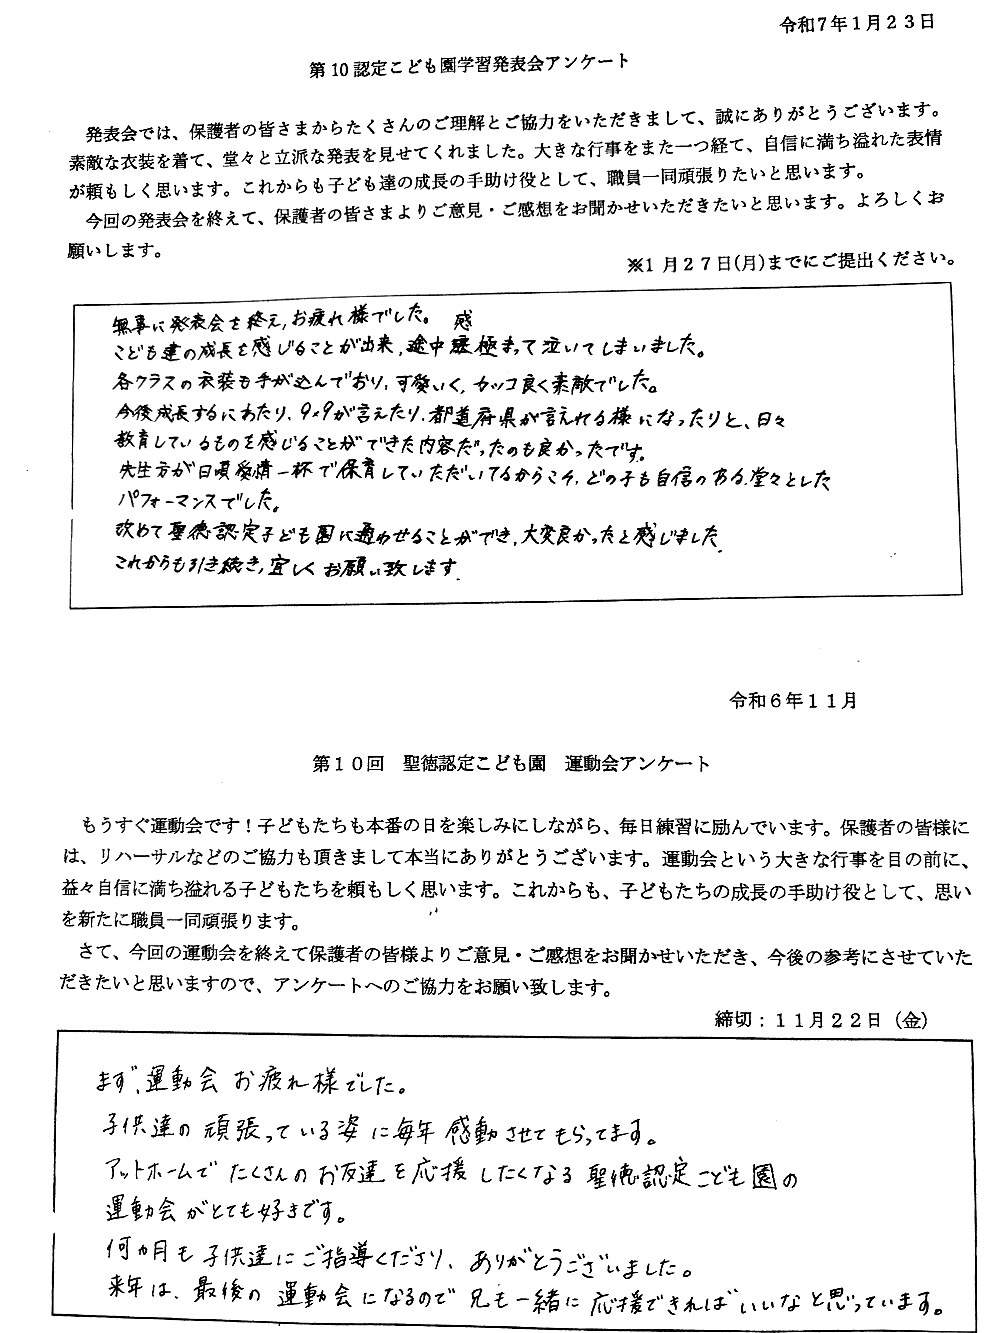 令和7年1月23日
第10認定こども園学習発表会アンケート
発表会では、保護者の皆さまからたくさんのご理解とご協力をいただきまして、誠にありがとうございます。
素敵な衣装を着て、堂々と立派な発表を見せてくれました。大きな行事をまた一つ経て、自信に満ち溢れた表情
が頼もしく思います。これからも子ども達の成長の手助け役として、職員一同頑張りたいと思います。
今回の発表会を終えて、保護者の皆さまよりご意見・ご感想をお聞かせいただきたいと思います。よろしくお
願いします。
※1月27日(月)までにご提出ください。
無事に発表会を終え,お疲れ様でした。
感
こども達の成長を感じることが出来,途中極まって泣いてしまいました。
各クラスの衣装も手が込んでおり,可愛いく,カッコ良く素敵でした。
今後成長するにあたり,9×9が言えたり,都道府県が言えれる様になったりと、日々
教育しているものを感じることができた内容だったのも良かったです。
先生方が日頃愛情一杯で保育していただいてるからこそ,どの子も自信のある,堂々とした
パフォーマンスでした。
改めて聖徳認定子ども園に通わせることができ,大変良かったと感じました.
これからも引き続き,宜しくお願い致します.
令和6年11月
第10回　聖徳認定こども園　運動会アンケート
もうすぐ運動会です！子どもたちも本番の日を楽しみにしながら、毎日練習に励んでいます。保護者の皆様に
は、リハーサルなどのご協力も頂きまして本当にありがとうございます。運動会という大きな行事を目の前に、
益々自信に満ち溢れる子どもたちを頼もしく思います。これからも、子どもたちの成長の手助け役として、思い
を新たに職員一同頑張ります。
さて、今回の運動会を終えて保護者の皆様よりご意見・ご感想をお聞かせいただき、今後の参考にさせていた
だきたいと思いますので、アンケートへのご協力をお願い致します。
締切：11月22日（金）
まず、運動会お疲れ様でした。
子供達の頑張っている姿に毎年感動させてもらってます。
アットホームでたくさんのお友達を応援したくなる聖徳認定こども園の
運動会がとても好きです。
何ヵ月も子供達にご指導くださり、ありがとうございました。
来年は、最後の運動会になるので兄も一緒に応援できればいいなと思っています。